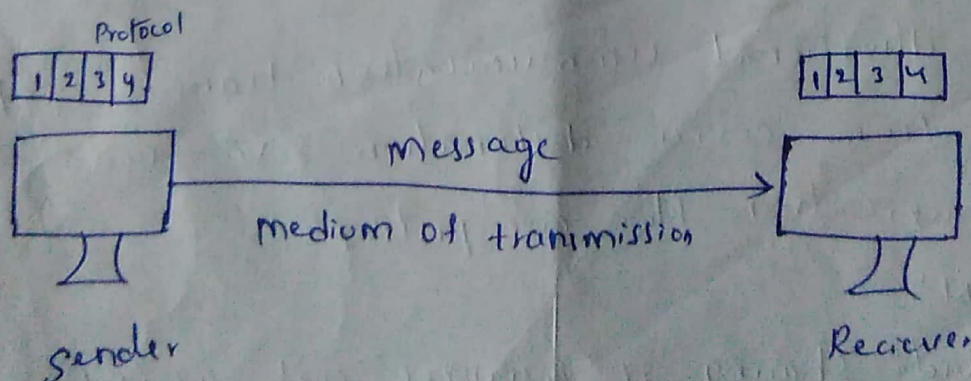 Protocol
1 2 3 4
1 2 3 4
message
medium of transmission
Sender
Reciever